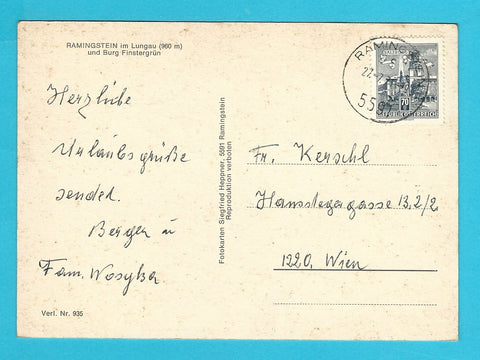 RAMINGSTEIN im Lungau (960 m)
und Burg Finstergrün
Herzliche
Urlaubsgrüße
sendet
Berger u
Fam.
Verl. Nr. 935
Fotokarten Siegfried Heppner, 5591 Ramingstein
Reproduktion verboten
RAMINGS
5591
70
REPUBLIK ÖSTERREICH
Fr. Kerschl
13/2/2
1220, Wien